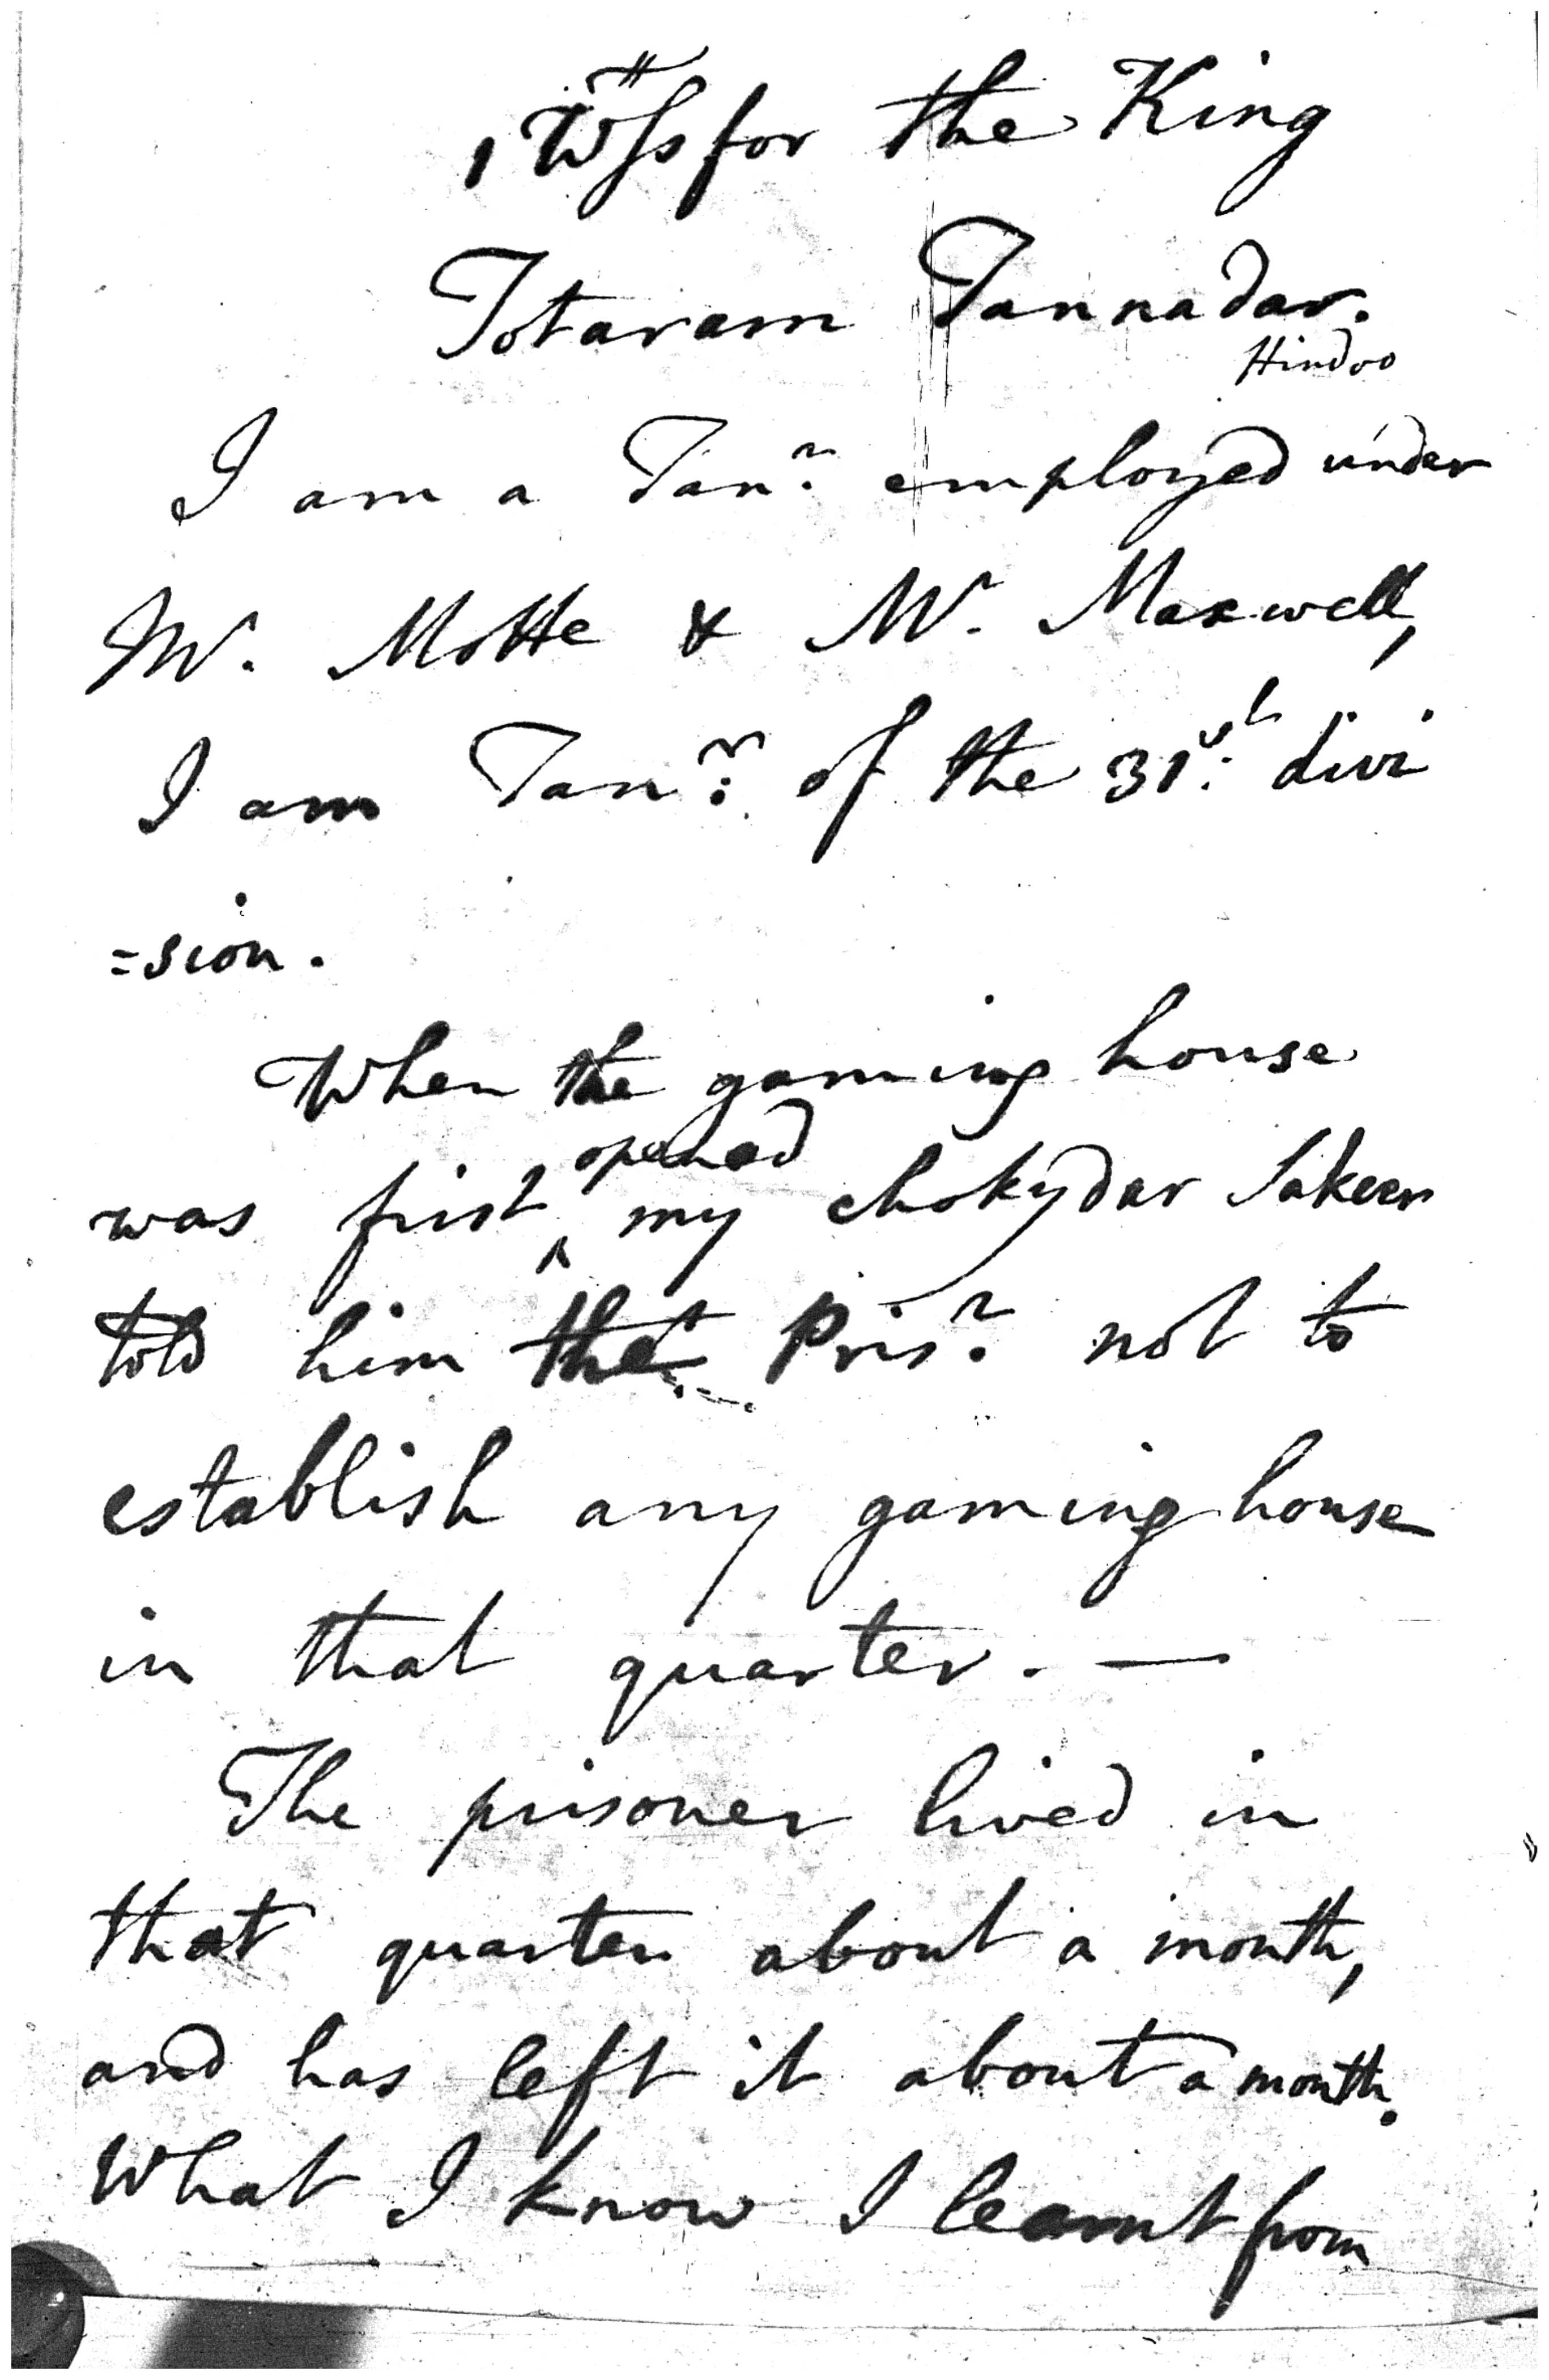 1 Wss for the King
Totaram Tannadar.
Hindoo
I am a Tanr. employed under
Mr. Motte & Mr. Maxwell,
I am Tanr. of the 31st. divi
=sion.
When the gaming house
was first opened my chokydar Sakeer
told him the Prisr. not to
establish any gaming house
in that quarter. —
The prisoner lived in
that quarter about a month,
and has left it about a month.
What I know I learnt from